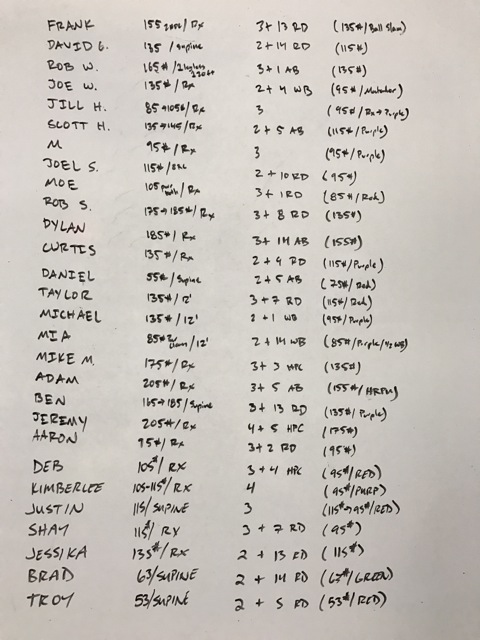 FRANK 155 / Rx 3 + 13 RD (135# / Ball Slam)
DAVID G. 135 / Supine 2 + 14 RD (115#)
ROB W. 165# / 3 + 1 AB (135#)
JOE W. 135# / Rx 2 + 4 WB (95# /
JILL H. 85→105# / Rx 3 (95# / Rx→Purple)
SCOTT H. 135→145 / Rx 2 + 5 AB (115# / Purple)
M 95# / Rx 3 (95# / Purple)
JOEL S. 115# / 2 + 10 RD (95#)
MOE 105 / Rx 3 + 1 RD (85# / Red)
ROB S. 175→185# / Rx 3 + 8 RD (135#)
DYLAN 185# / Rx 3 + 14 AB (155#)
CURTIS 135# / Rx 2 + 9 RD (115# / Purple)
DANIEL 55# / Supine 2 + 5 AB (75# / Red)
TAYLOR 135# / 12' 3 + 7 RD (115# / Red)
MICHAEL 135# / 12' 2 + 1 WB (95# / Purple)
MIA 85# / 12' 2 + 14 WB (85# / Purple /
MIKE M. 175# / Rx 3 + 3 HPC (135#)
ADAM 205# / Rx 3 + 5 AB (155# / HRPU)
BEN 165→185 / Supine 3 + 13 RD (135# / Purple)
JEREMY 205# / Rx 4 + 5 HPC (175#)
AARON 95# / Rx 3 + 2 RD (95#)
DEB 105# / RX 3 + 4 HPC (95# / RED)
KIMBERLEE 105-115# / RX 4 (95# / PURP)
JUSTIN 115 / SUPINE 3 (115#→95# / RED)
SHAY 115# / RX 3 + 7 RD (95#)
JESSIKA 135# / RX 2 + 13 RD (115#)
BRAD 63 / SUPINE 2 + 14 RD (63# / GREEN)
TROY 53 / SUPINE 2 + 5 RD (53# / RED)